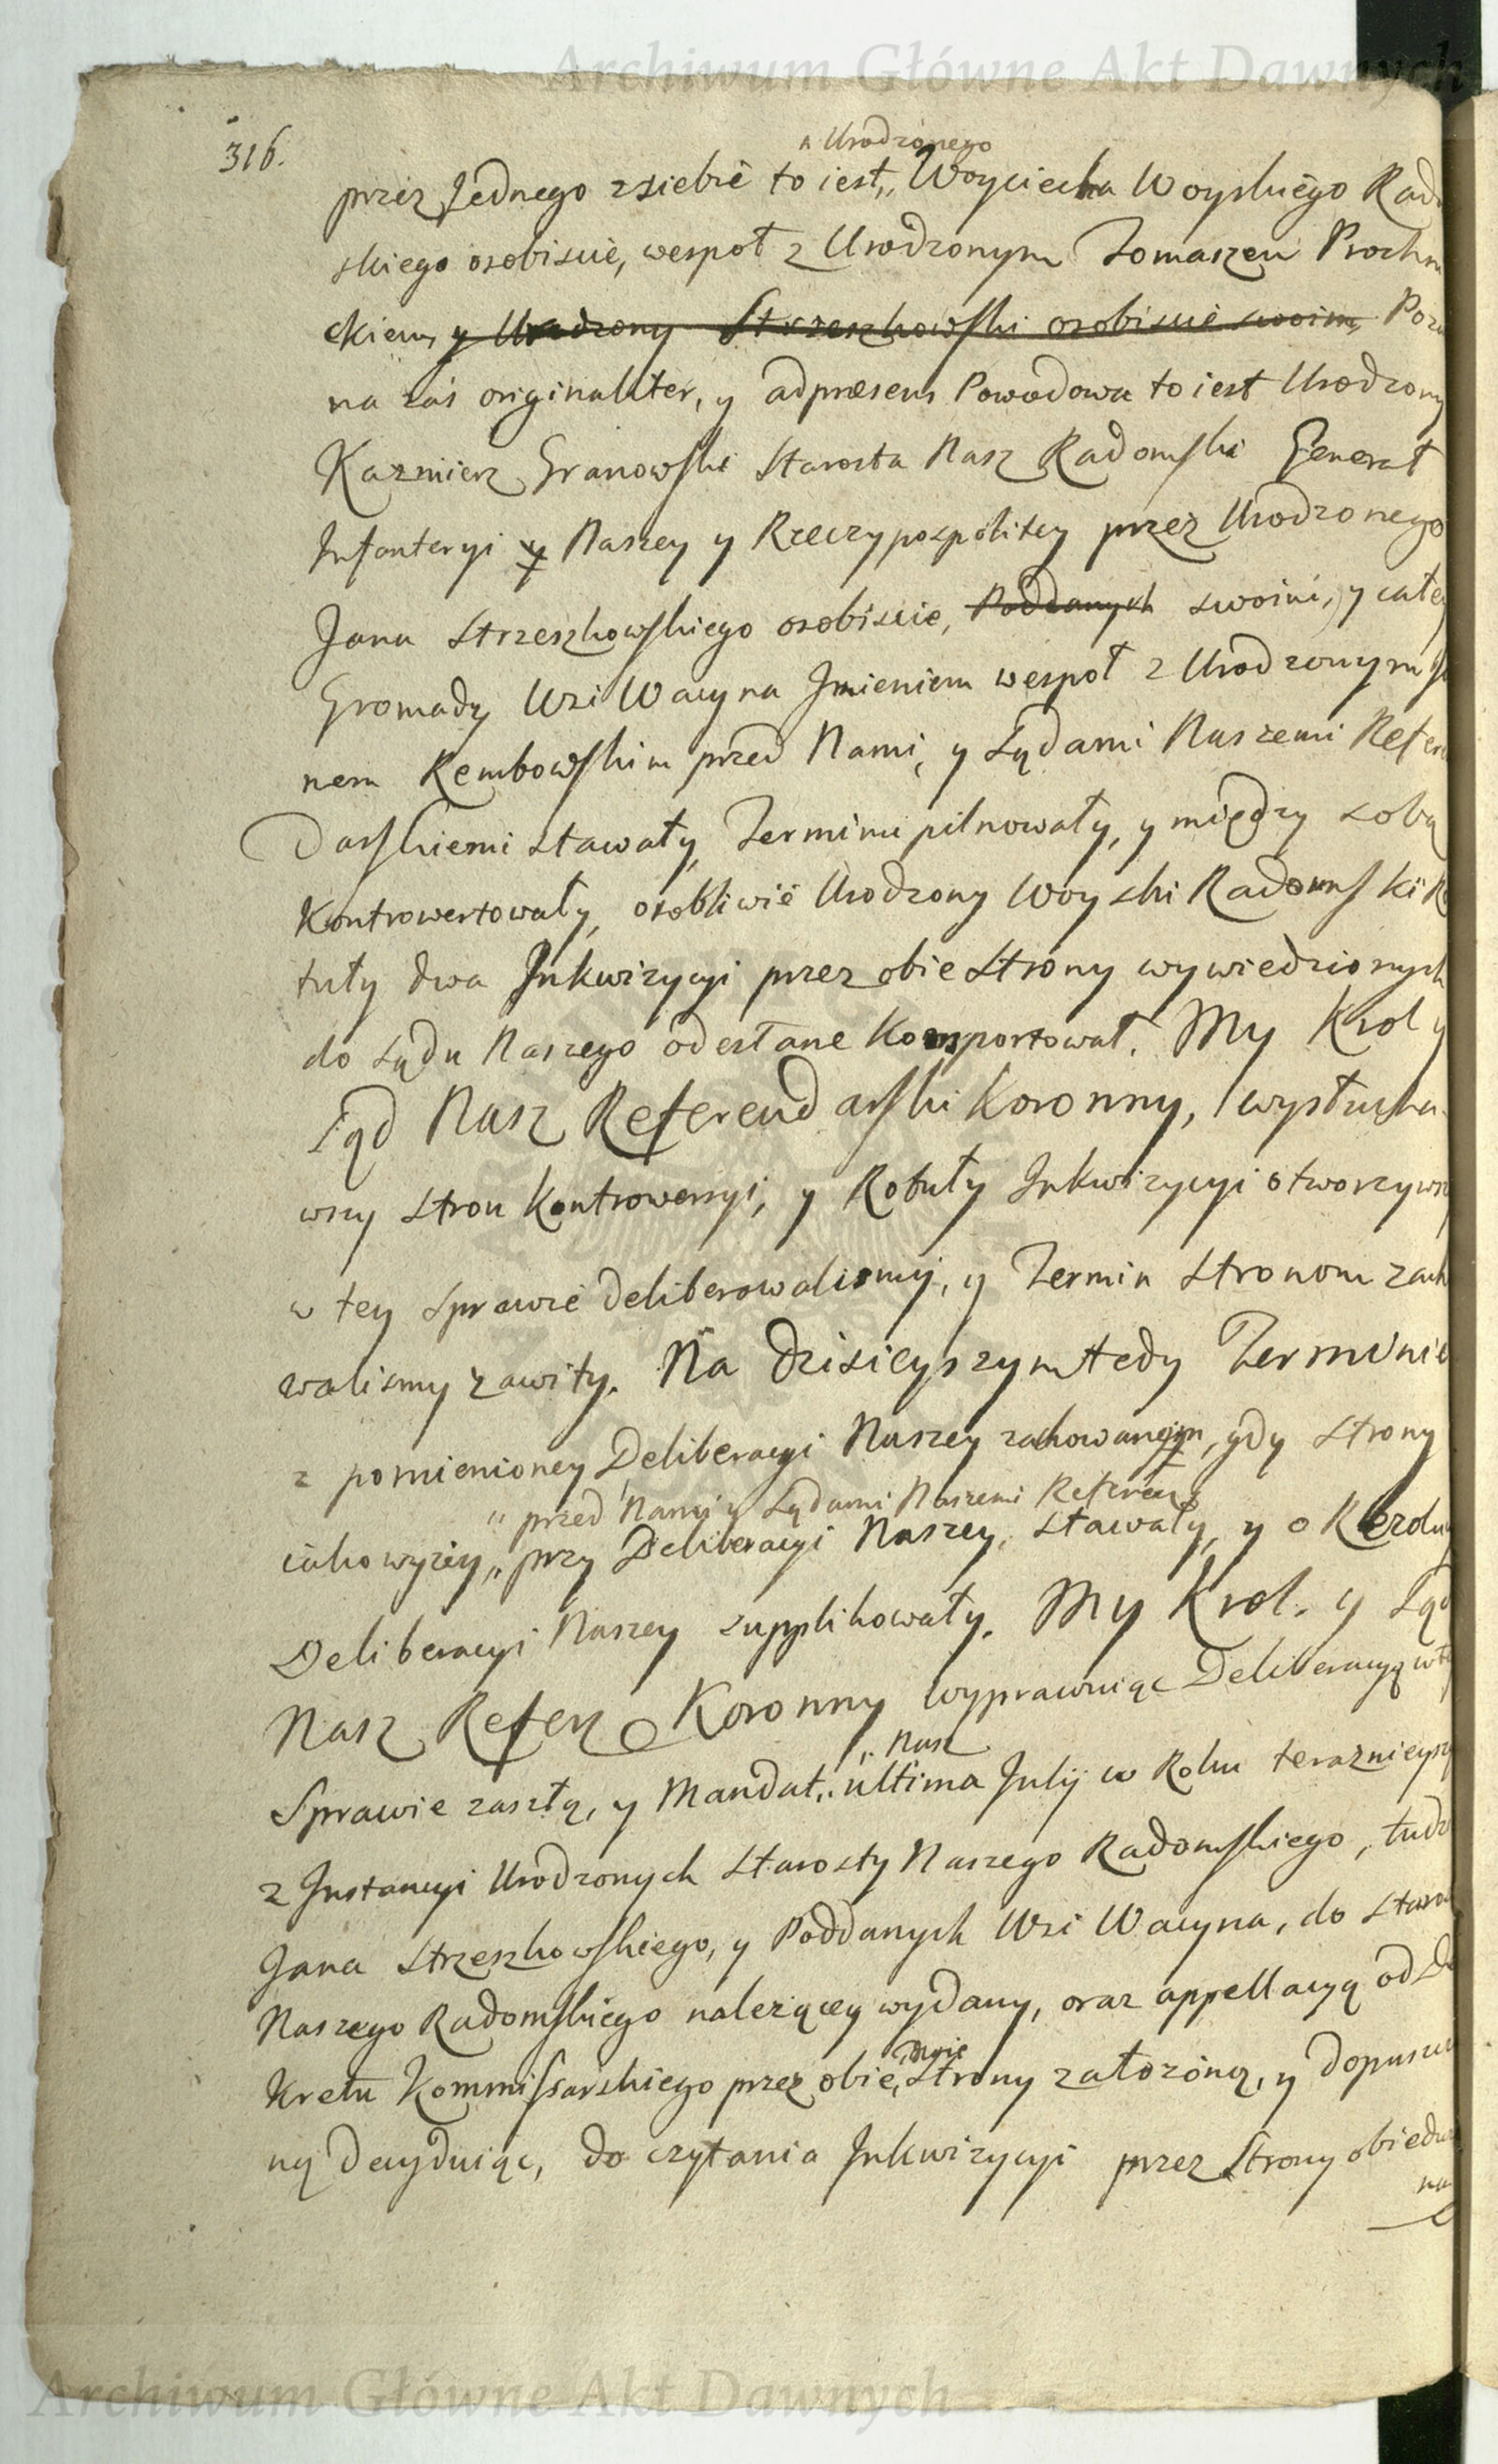 Archiwum Główne Akt Dawnych
316.
Urodzonego
przez Jednego z siebie to iest,, Woyciecha Woyskiego Rado
skiego osobiscie, wespoł z Urodzonym Tomaszem Prochni
ckiem, y Urodzony Strzeszkowski osobiscie swoim, Poz
na zaś originaliter, y adpræsens Powodowa to iest Urodzony
Kazmierz Granowski Starosta Nasz Radomski Generał
Infanteryi y Naszey y Rzeczypospolitey przez Urodzonego
Jana Strzeszkowskiego osobiscie, Poddanych swoim, y całey
Gromady Wsi Wacyna Jmieniem wespoł z Urodzonym
nem Rembowskim przed Nami, y Sądami Naszemi Referen
Darskiemi stawały, Terminu pilnowały, y między sobą
Kontrowertowały, osobliwie Urodzony Woyski Radomski Ro
tuły dwa Inkwizycyi przez obie Strony wywiedzionych
do Sądu Naszego odesłane Komportował. My Krol y
Sąd Nasz Referendarski Koronny, wysłucha-
wszy Stron Kontrowersyi, y Rotuły Inkwizycyi otworzywszy
w tey Sprawie deliberowalismy, y Termin Stronom zacho
walismy zawity. Na dzisieyszym tedy Terminie
z pomienioney Deliberacyi Naszey zachowanym, gdy Strony
,, przed Nami y Sądami Naszemi Referen
iako wyżey,, przy Deliberacyi Naszey, stawały, y o Rezoluc
Deliberacyi Naszey supplikowały. My Krol. y Sąd
Nasz Referz Koronny wyprawuiąc Deliberacyą w te
,, Nasz
Sprawie zaszłą, y Mandat,, ultima Julij w Roku teraznieysz
z Instancyi Urodzonych Starosty Naszego Radomskiego, tudz
Jana Strzeszkowskiego, y Poddanych Wsi Wacyna, do Staros
Naszego Radomskiego należącey wydany, oraz appellacyą od De
Dwie
Kretu Kommissarskiego przez obie, Strony założoną, y dopuszczo
ną Decyduiąc, do czytania Inkwizycyi przez Strony obiedwie
na
Archiwum Główne Akt Dawnych